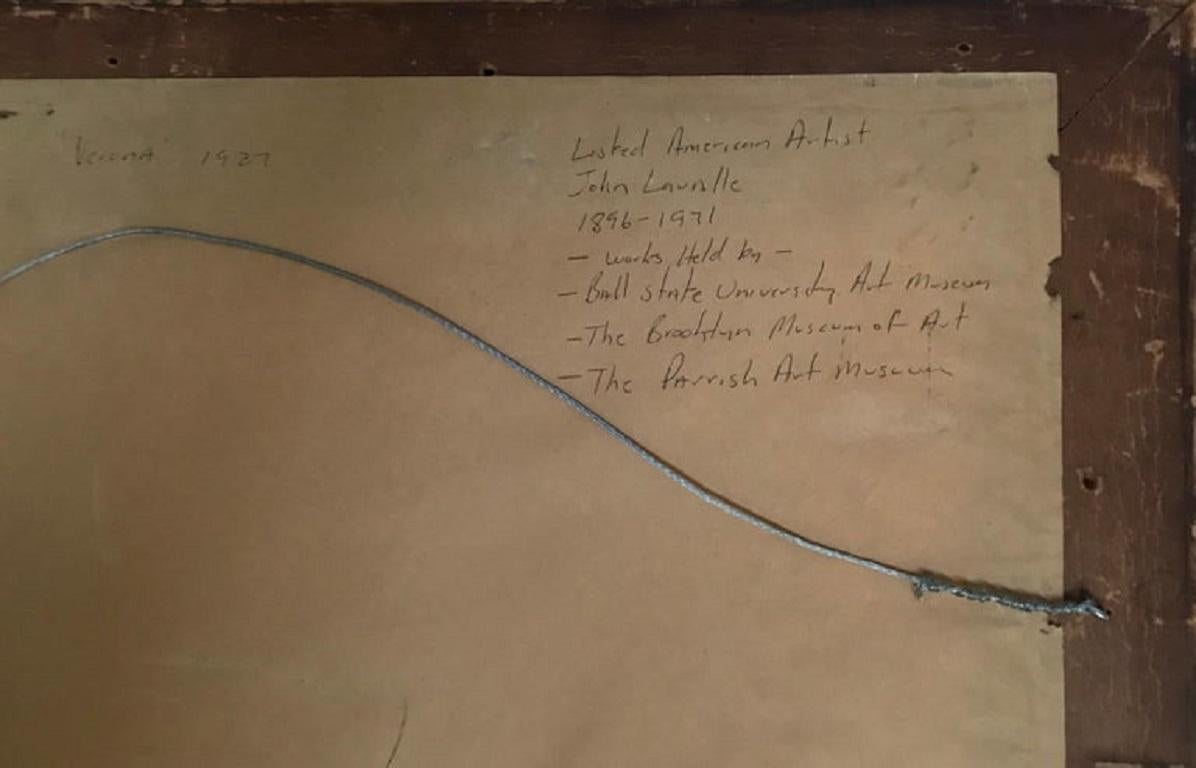 Verona 1927
Listed American Artist
John Lavalle
1896-1971
- works Held by -
- Ball State University Art Museum
- The Brooklyn Museum of Art
- The Parrish Art Museum